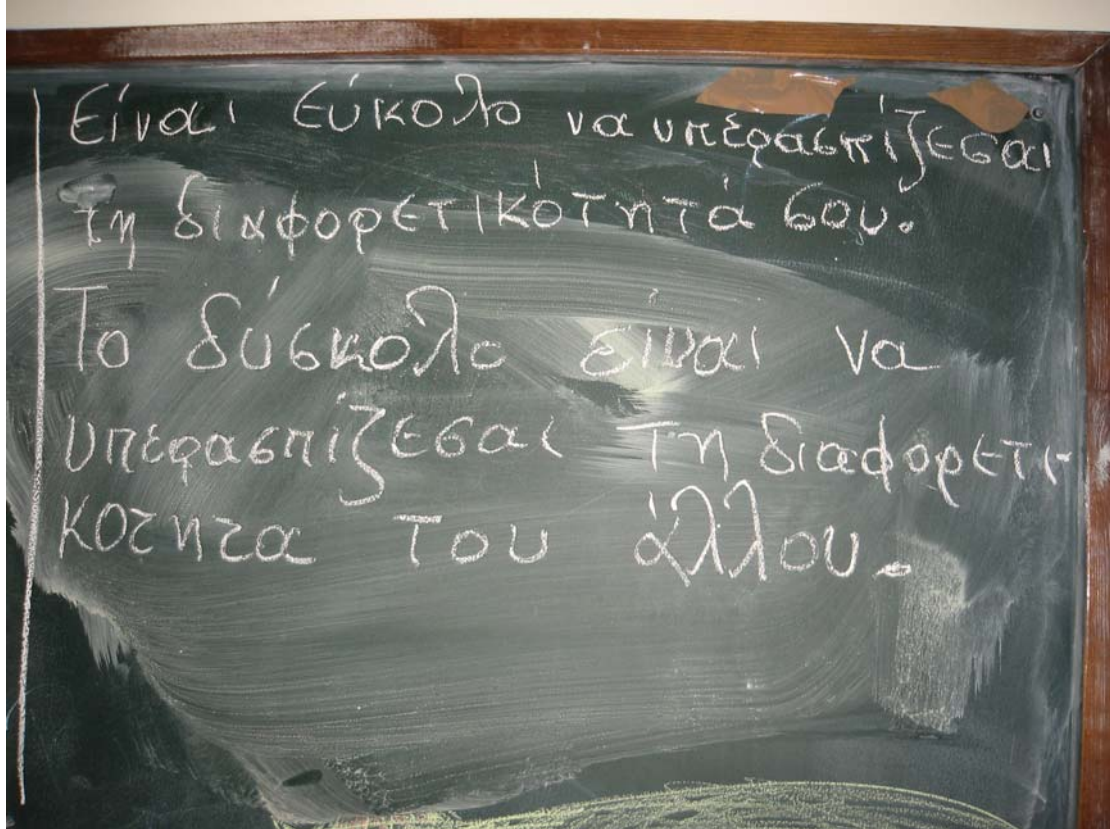 Είναι εύκολο να υπερασπίζεσαι
τη διαφορετικότητά σου.
Το δύσκολο είναι να
υπερασπίζεσαι τη διαφορετι
κοτητα του άλλου.